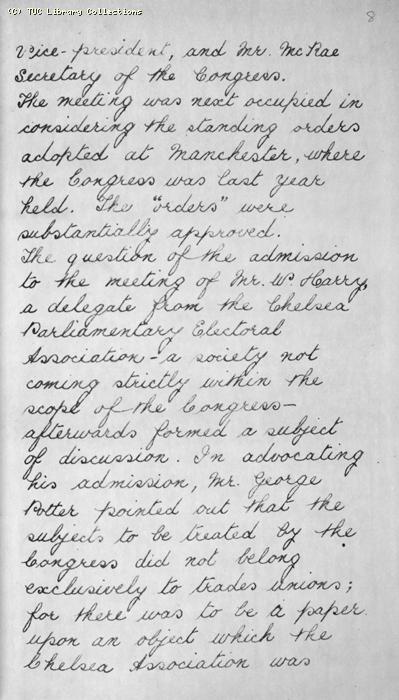 (C) TUC Library Collections
8
Vice-president, and Mr. McRae
Secretary of the Congress.
The meeting was next occupied in
considering the standing orders
adopted at Manchester, where
the Congress was last year
held. The "orders" were
substantially approved.
The question of the admission
to the meeting of Mr. Wm. Harry,
a delegate from the Chelsea
Parliamentary Electoral
Association - a society not
coming strictly within the
scope of the Congress -
afterwards formed a subject
of discussion. In advocating
his admission, Mr. George
Potter pointed out that the
subjects to be treated by the
Congress did not belong
exclusively to trades unions;
for there was to be a paper
upon an object which the
Chelsea Association was